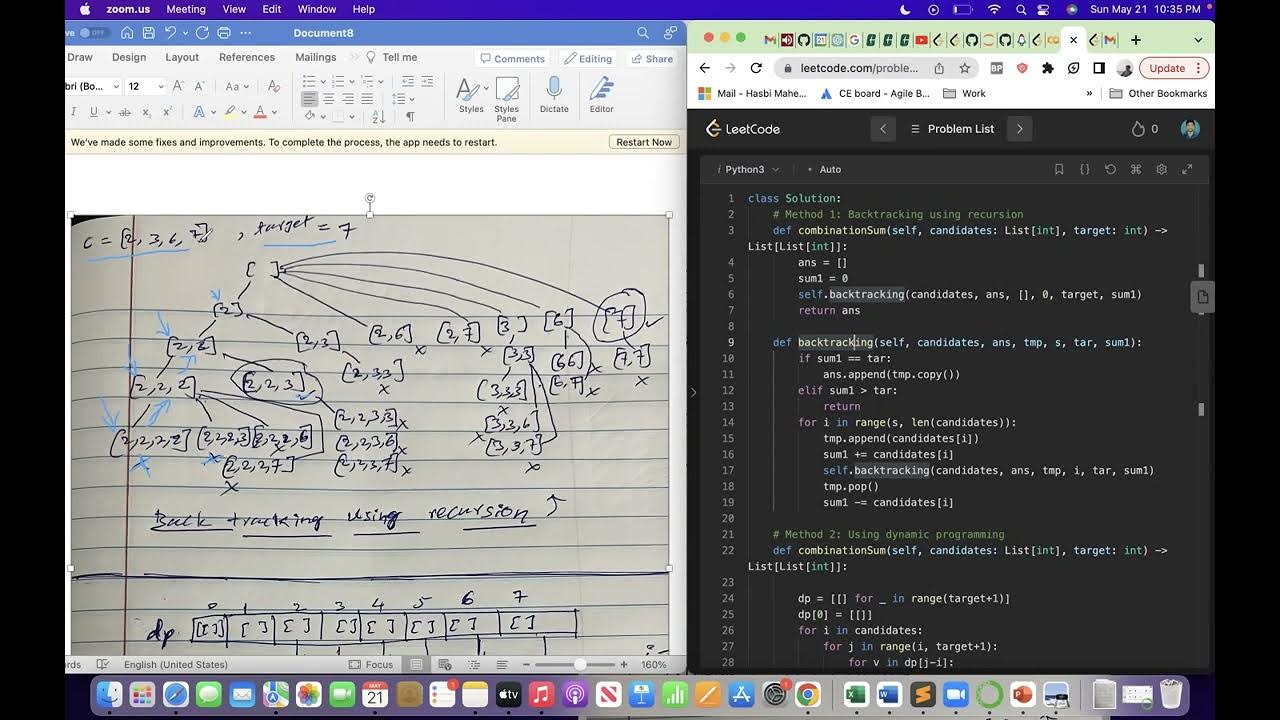 zoom.us Meeting View Edit Window Help
Sun May 21 10:35 PM
ve Off
Document8
Draw Design Layout References Mailings Tell me
Comments Editing Share
bri (Bo... 12
Styles Styles Pane Dictate Editor
We've made some fixes and improvements. To complete the process, the app needs to restart. Restart Now
c = [2, 3, 6, 7] , target = 7
[ ]
[2] [2,6] [2,7] [3] [6] [7]
[2,2] [2,3] [3,3] [6,6] [7,7]
[2,2,2] [2,2,3] [2,3,3] [3,3,3] [6,7]
[2,2,2,2] [2,2,2,3] [2,2,2,6] [2,2,3,3] [3,3,6]
[2,2,2,7] [2,2,3,6] [3,3,7]
[2,2,3,7]
Back tracking using recursion
0 1 2 3 4 5 6 7
dp [[]] [ ] [ ] [ ] [ ] [ ] [ ] [ ]
rds English (United States) Focus 160%
leetcode.com/proble... Update
Mail - Hasbi Mahe... CE board - Agile B... Work » Other Bookmarks
LeetCode Problem List 0
i Python3 • Auto
1 class Solution:
2 # Method 1: Backtracking using recursion
3 def combinationSum(self, candidates: List[int], target: int) ->
List[List[int]]:
4 ans = []
5 sum1 = 0
6 self.backtracking(candidates, ans, [], 0, target, sum1)
7 return ans
8
9 def backtracking(self, candidates, ans, tmp, s, tar, sum1):
10 if sum1 == tar:
11 ans.append(tmp.copy())
12 elif sum1 > tar:
13 return
14 for i in range(s, len(candidates)):
15 tmp.append(candidates[i])
16 sum1 += candidates[i]
17 self.backtracking(candidates, ans, tmp, i, tar, sum1)
18 tmp.pop()
19 sum1 -= candidates[i]
20
21 # Method 2: Using dynamic programming
22 def combinationSum(self, candidates: List[int], target: int) ->
List[List[int]]:
23
24 dp = [[] for _ in range(target+1)]
25 dp[0] = [[]]
26 for i in candidates:
27 for j in range(i, target+1):
28 for v in dp[j-i]:
MAY
21